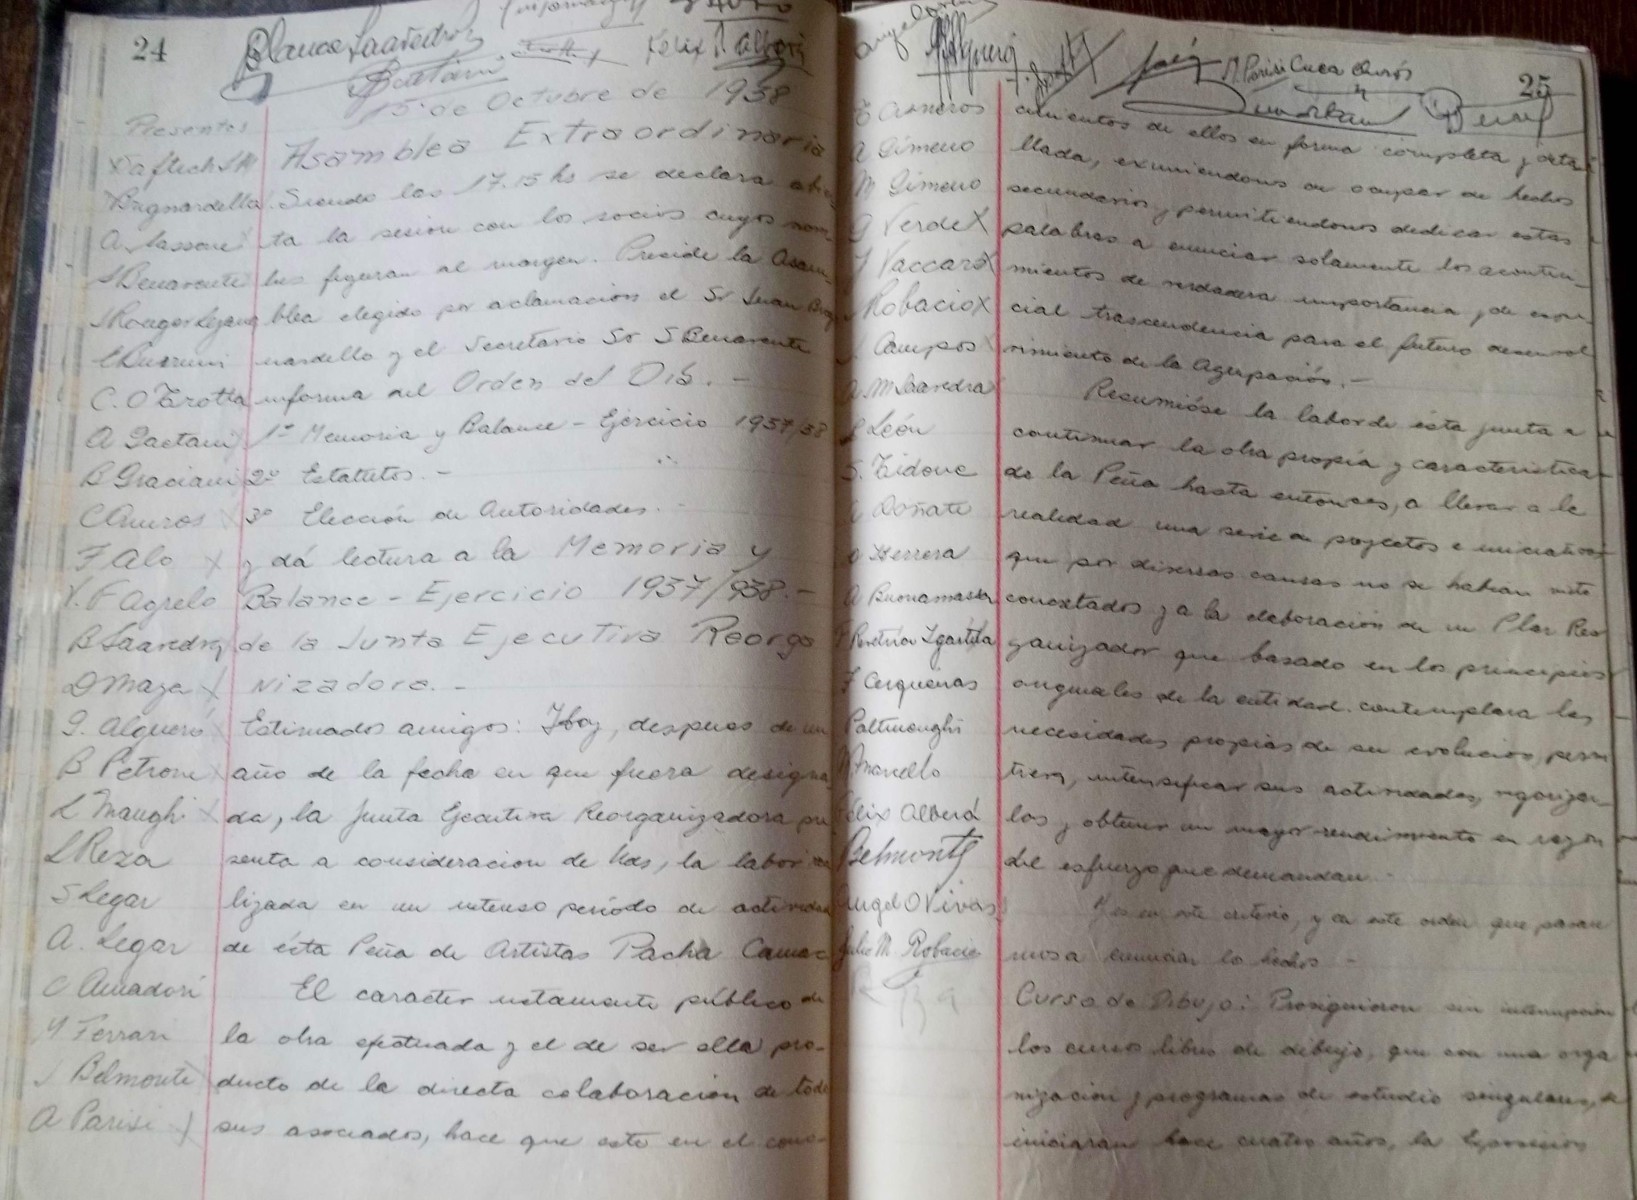 24
Blanca Saavedra
Felix Alberá
15 de Octubre de 1938
Presentes
Asamblea Extraordinaria
Brignardella
Siendo las 17.15 hs se declara abier
ta la sesión con los socios cuyos nom-
S Benavente
bres figuran al margen. Preside la Asam-
blea elegido por aclamación el Sr Juan Brig
nardello y el Secretario Sr S Benavente
C. O Trotta
informa del Orden del Día. -
A Gaetani
1º Memoria y Balance - Ejercicio 1937/38
B Graciani
2º Estatutos. -
3º Elección de Autoridades. -
F Alo x
y dá lectura a la Memoria y
V. F Agrelo
Balance - Ejercicio 1937/938. -
B Saavedra
de la Junta Ejecutiva Reorga
D Maza x
nizadora. -
G. Algueró
Estimados amigos: Hoy, despues de un
B Petrone
año de la fecha en que fuera designa
L Maughi
da, la Junta Ejecutiva Reorganizadora pre
L Reza
senta a consideracion de Uds, la labor rea
S Legar
lizada en un intenso período de actividad
A. Legar
de ésta Peña de Artistas Pacha Camac
C Amadori
El caracter netamente público de
Y Ferrari
la obra efectuada y el de ser ella pro-
J Belmonte
ducto de la directa colaboración de todos
A Parisi x
sus asociados, hace que este en el cono-
25
M. Parisi Cuca Quirós
E Cisneros
cimientos de ellos en forma completa y deta
A Gimeno
llada, eximiendonos de ocupar de hechos
M Gimeno
secundarios y permitiendonos dedicar estas
G Verde x
palabras a enunciar solamente los aconteci-
Y Vaccaro x
mientos de verdadera importancia y de espe-
Robacio x
cial trascendencia para el futuro desenvol
Campos
vimiento de la Agrupación. -
A. M Saavedra
Resumióse la labor de ésta junta a
León
continuar la obra propia y característica
S. Tidone
de la Peña hasta entonces, a llevar a la
Doñate
realidad una serie de proyectos e iniciativas
O Herrera
que por diversas causas no se habian visto
A Buonamassa
concretados y a la elaboración de un Plan Reor
ganizador que basado en los principios
F Cerqueiras
originales de la entidad contemplara las
Paltmonghi
necesidades propias de su evolucion, permi
Mancello
tiera, intensificar sus actividades, vigorizar-
Felix Alberá
las y obtener un mayor rendimiento en razón
Belmonte
del esfuerzo que demandan. -
Angel O Vivas
Y es en este criterio, y en este orden que pasare
Julio M. Robacio
mos a enunciar los hechos -
Curso de Dibujo: Prosiguieron sin interrupción
los cursos libres de dibujo, que con una orga
nización y programas de estudio singulares, se
iniciaran hace cuatro años, la Exposicion